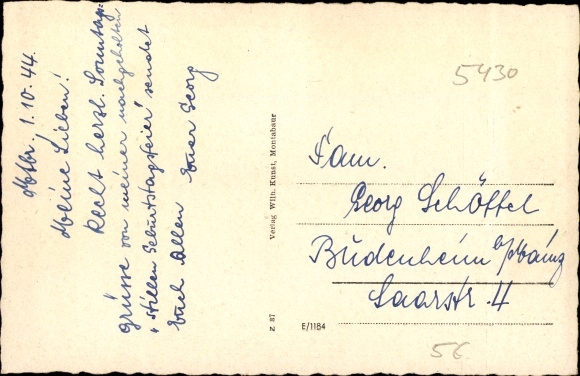 Mtbr. 1.10.44.
Meine Lieben!
Recht herzl. Sonntags-
grüsse von meiner nachgeholten
"stillen Geburtstagsfeier" sendet
Euch Allen Euer Georg
Verlag Wilh. Kunst, Montabaur
Z 87
E/1184
5430
Fam.
Georg Schöffel
Budenheim b/Mainz
Saarstr. 4
56